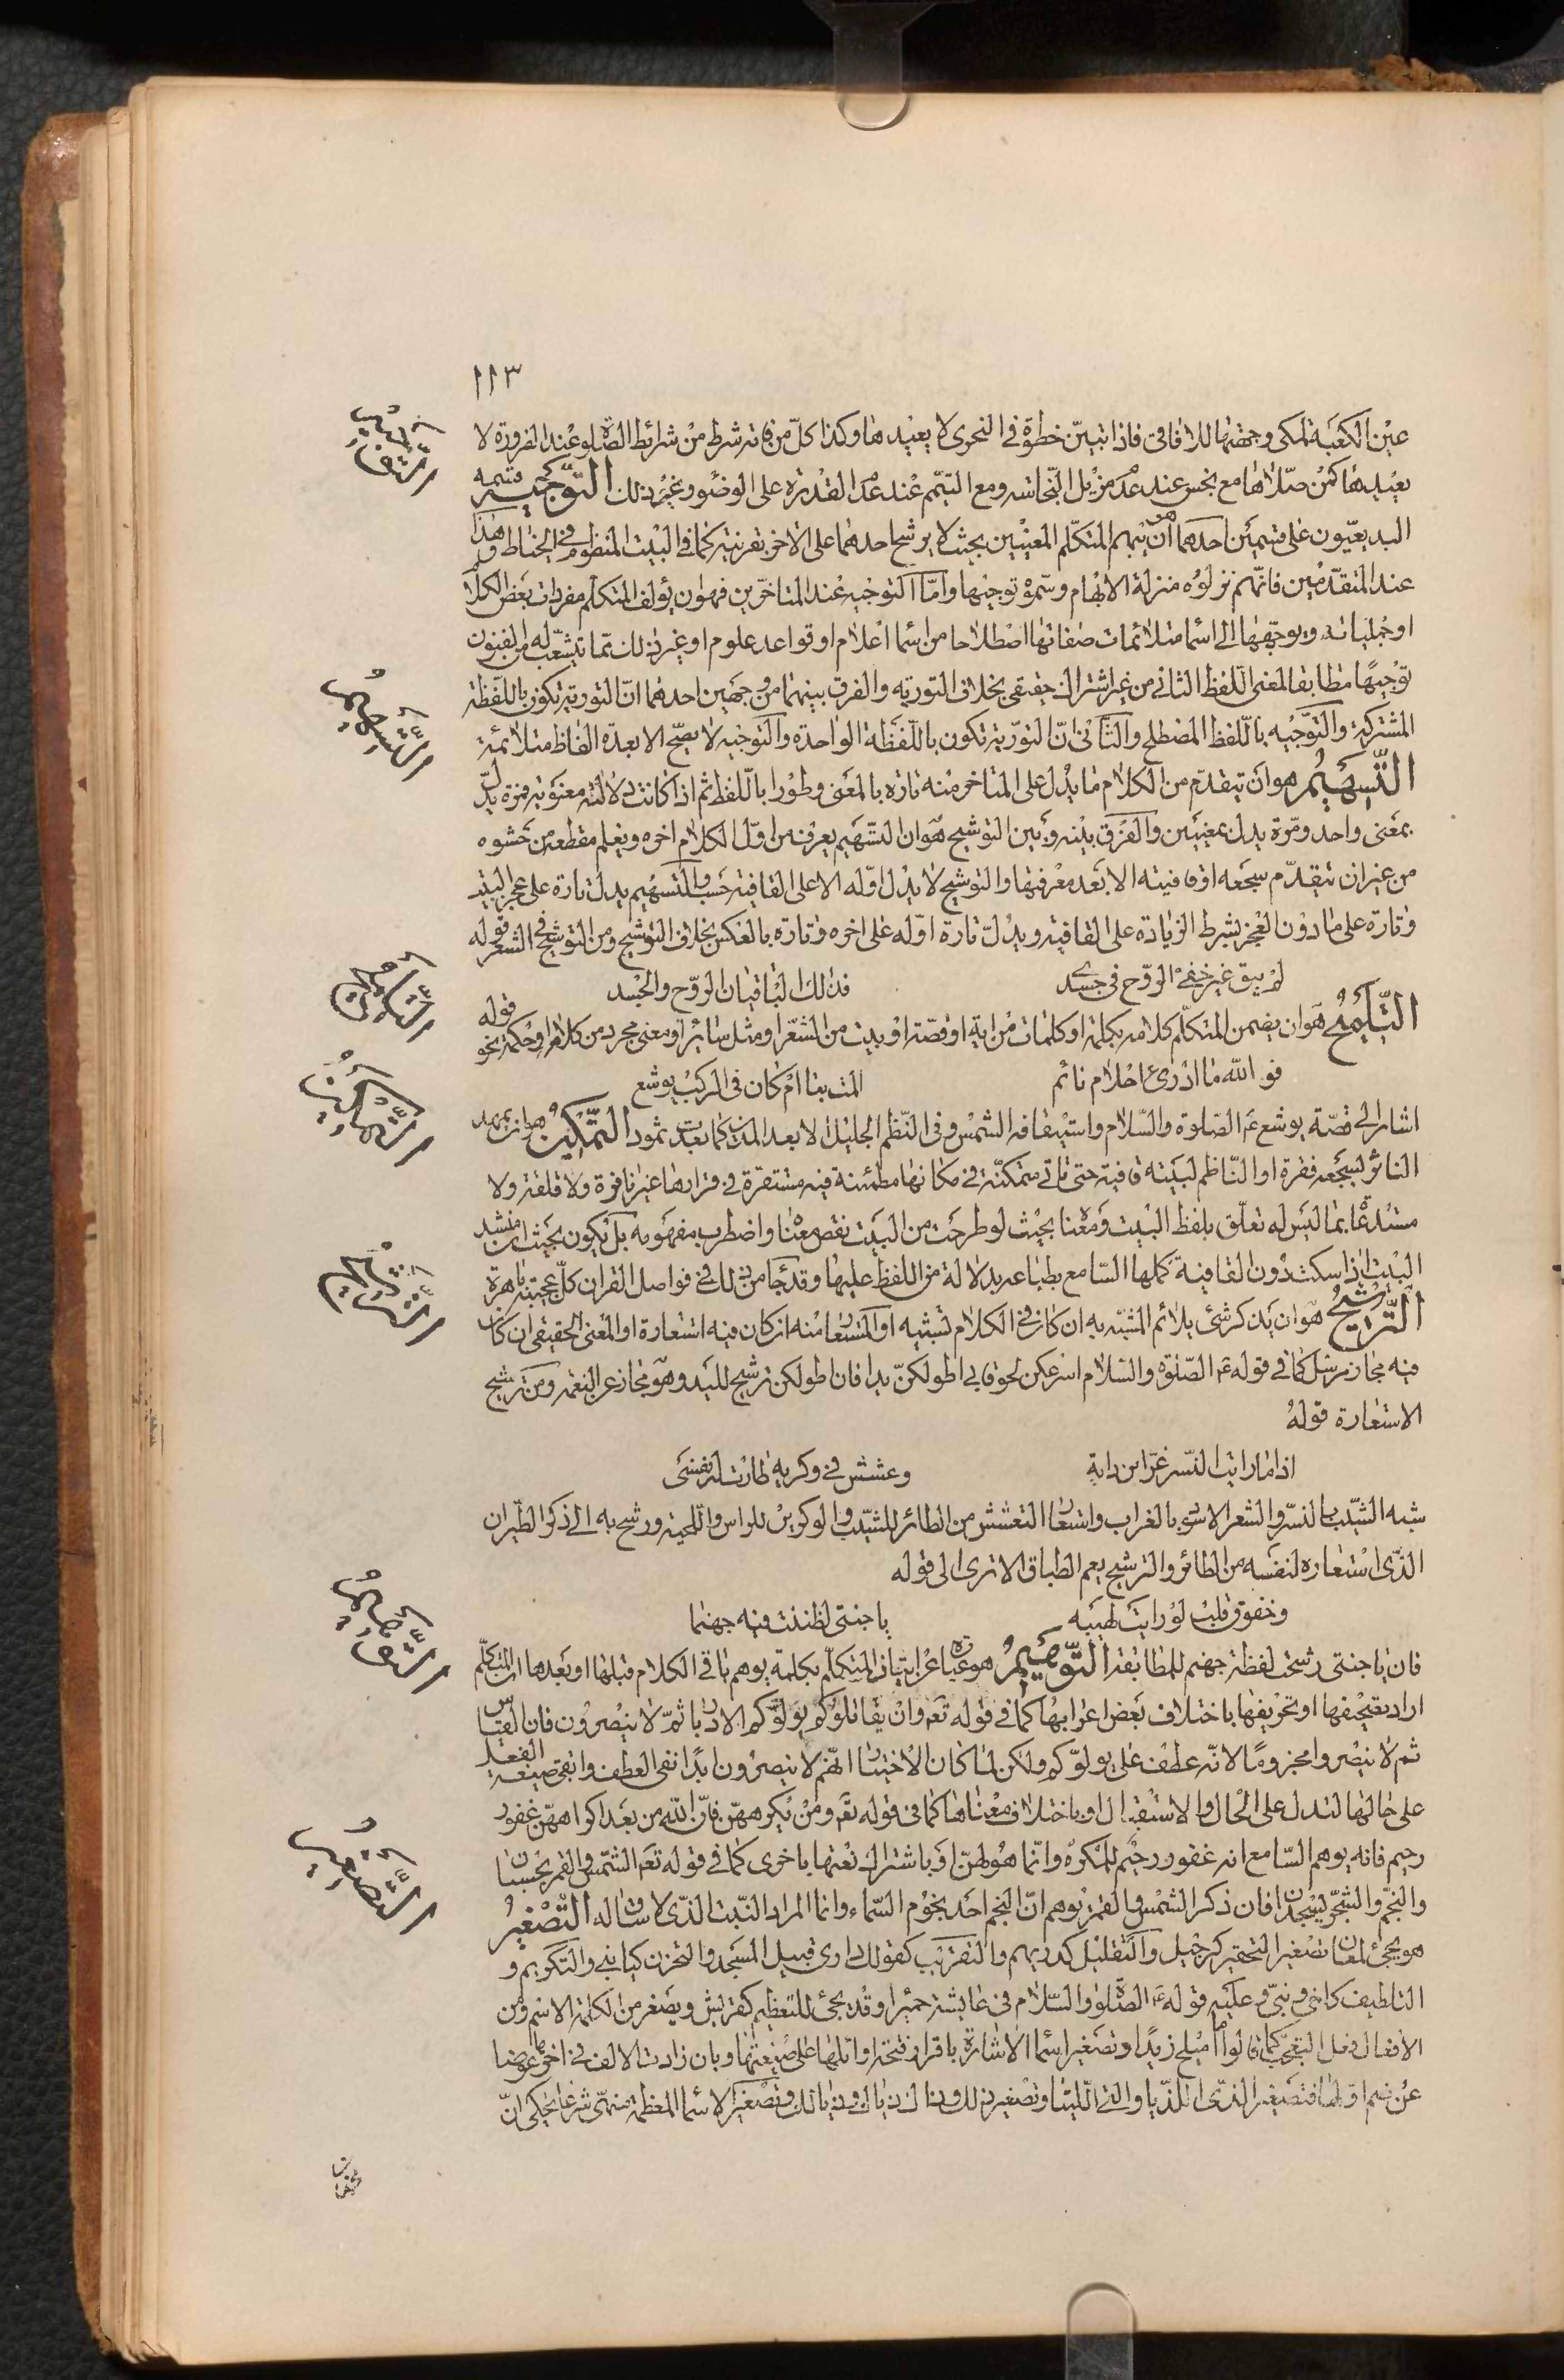 ١١٣
عين الكعبة للمكى وجهتها للافاقى فاذا تبيّن خطوة فى التحرى لا يعيدها وكذا كلّ من فاته شرط من شرائط الصّلوة عند الضرورة لا
يعيدها كمن صلّاها مع نجس عند عدم مزيل النّجاسة ومع التيمّم عند عدم القدرة على الوضوء وغير ذلك التّوجيه قسمه
البديعيّون على قسمين احدهما هو ان يبهم المتكلّم المعنيين بحيث لا يرشح احدهما على الاخر بقرينة كما فى البيت المنظوم فى الخياط وهذا
عند المتقدّمين فانّهم نزلوه منزلة الابهام وسمّوه توجيها وامّا التوجيه عند المتاخّرين فهو ان يؤلف المتكلّم مفردات بعض الكلام
او جملياته ويوجّهها الى اسما متلائمات صفاتها اصطلاحا من اسما اعلام او قواعد علوم او غير ذلك ممّا يتشعّب له من الفنون
توجيهًا مطابقا لمعنى اللّفظ الثانى من غير اشتراك حقيقى بخلاف التورية والفرق بينهما من وجهين احدهما انّ التورية تكون باللّفظة
المشتركة والتوجيه باللّفظ المصطلح والثّانى انّ التورية تكون باللّفظة الواحدة والتوجيه لا يصحّ الا بعدة الفاظ متلائمة
التّسهيم هو ان يتقدّم من الكلام ما يدل على المتاخر منه تارة بالمعنى وطورا باللّفظ ثم اذا كانت دلالته معنوية فمرة يدلّ
بمعنى واحد ومرّة يدل بمعنيين والفرق بينه وبين التوشيح هو ان التسهيم يعرف من اوّل الكلام اخره ويعلم مقطعه من حشوه
من غير ان يتقدّم سجعه او قافيته الا بعد معرفتها والتوشيح لا يدل اوّله الا على القافية حسب والتسهيم يدل تارة على عجز البيت
وتارة على ما دون العجز بشرط الزيادة على القافية ويدلّ تارة اوّله على اخره وتارة بالعكس بخلاف التوشيح ومن التوشيح فى الشعر قوله
لم يبق غير خفى الروح فى جسدى فذالك الباقيان الروح والجسد
التّلميح هو ان يضمن المتكلّم كلامه بكلمة او كلمات من اية او قصّة او بيت من الشعر او مثل سائر او معنى مجرد من كلام او حكمة نحو قوله
فو الله ما ادرى احلام نائم المت بنا ام كان فى الركب يوشع
اشار الى قصّة يوشع عم الصلوة والسّلام واستيقافه الشمس وفى النّظم الجليل الا بعدا لمدين كما بعدت ثمود التّمكين هو ان يمهد
الناثر لسجعه فقرة او النّاظم لبيته قافية حتى تاتى متمكنّة فى مكانها مطمئنة فيه مستقرّة فى قرارها غير نافرة ولا قلقة ولا
مستدعًا بما ليس له تعلّق بلفظ البيت ومعنا بحيث لو طرحت من البيت نقص معناه واضطرب مفهومه بل يكون بحيث ان منشد
البيت اذا سكت دون القافية كملها السّامع بطباعه بدلالة من اللفظ عليها وقد جا من ذلك فى فواصل القران كلّ عجيبة باهرة
التّرشيح هو ان يذكر شئ يلائم المشبّه به ان كان فى الكلام تشبيه او المستعار منه ان كان فيه استعارة او المعنى الحقيقى ان كان
فيه مجاز مرسل كما فى قوله عم الصّلوة والسّلام اسرعكن لحوقا بى اطولكنّ يدا فان اطولكن ترشيح لليد وهو مجاز عن النعمة ومن ترشيح
الاستعارة قوله
اذا ما رايت النّسر غرّ ابن داية وعشش فى وكريه طارت له نفسى
شبه الشّيب بالنسر والشعر الاسود بالغراب واستعار التعشش من الطائر للشيب والوكرين للراس واللحية ورشح به الى ذكر الطيران
الذّى استعاره لنفسه من الطائر والترشيح يعم الطباق الا ترى الى قوله
وخفوق قلب لو رايت لهيبه يا جنتى لظننت فيه جهنما
فان يا جنتى رشحت لفظة جهنم للمطابقة التّوهيم هو عبارة عن اتيان المتكلّم بكلمة يوهم باقى الكلام قبلها او بعدها ان المتكلّم
اراد تصحيفها او تحريفها باختلاف بعض اعرابها كما فى قوله تعم وان يقاتلوكم يولّوكم الادبار ثمّ لا ينصرون فان القياس
ثم لا ينصروا مجزومًا لانّه عطف على يولوّكم ولكن لما كان الاخبار انّهم لا ينصرون ابدًا نفى العطف وابقى صيغة الفعل
على حالها لتدل على الحال والاستقبال او باختلاف معناها كما فى قوله تعم ومن يكرههنّ فانّ الله من بعد اكراههنّ غفور
رحيم فانه يوهم السّامع انه غفور رحيم للمكره وانّما هو لهنّ او باشتراك نعتها باخرى كما فى قوله تعم الشّمس والقمر بحسبان
والنجم والشّجر يسجدان فان ذكر الشمس والقمر يوهم انّ النجم احد نجوم السّماء وانما المراد النّبت الذّى لا ساق له التّصغير
هو يجئ لمعان تصغير التحقير كرجيل والتقليل كدريهم والتقريب كقولك دارى قبيل المسجد والتحزن كيا بنى والتكريم و
التلطيف كاخى وبنىّ وعليه قوله عم الصّلوة والسّلام فى عايشة حميرا وقد يجئ للتعظيم كقريش ويصغر من الكلمة الاسم ومن
الافعال فعل التعجّب كما قالوا ما اميلح زيدًا وتصغير اسما الاشارة باقرار فتحة اوائلها على صيغتها وبان زادت الالف فى اخرها عوضا
عن ضم اوّلها فتصغير الذّى اللّذيا والتى اللّتيا وتصغير ذلك وذاك ذياك وذيالك وتصغير الاسما المعظمة منهىّ شرعا يحكى انّ
التّوجيه
التّسهيم
التّلميح
التّمكين
التّرشيح
التّوهيم
التّصغير